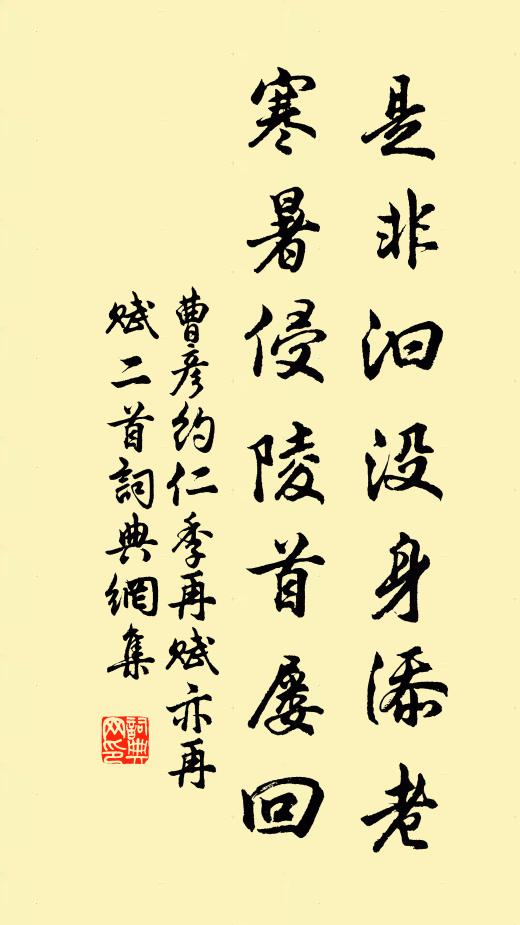 是非汩没身添老
寒暑侵陵首屡回
曹彦约仁季再赋亦再
赋二首詞典網集
詞典网印